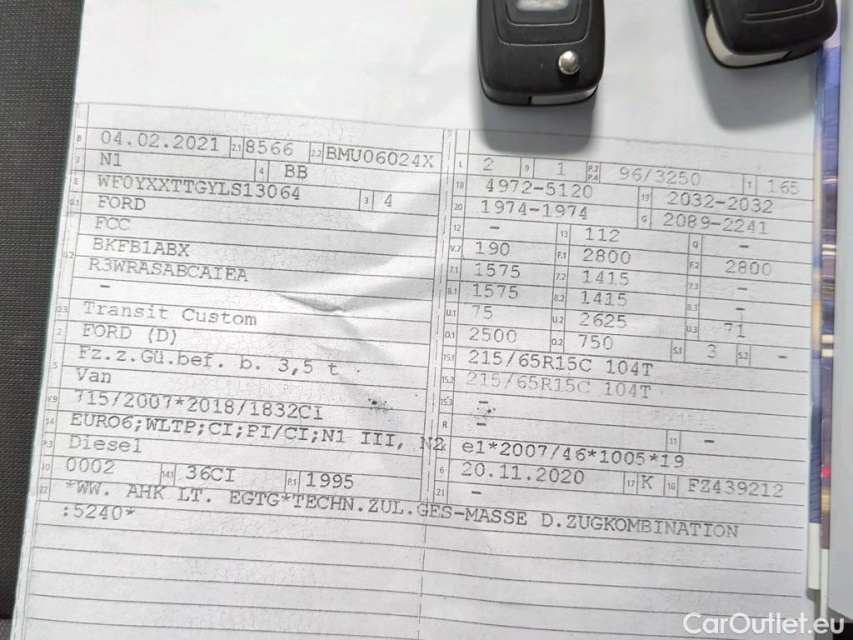 B 04.02.2021 2.1 8566 2.2 BMU06024X
J N1 4 BB
E WF0YXXTTGYLS13064 3 4
D.1 FORD
FCC
D.2 BKFB1ABX
R3WRASABCAIEA
-
D.3 Transit Custom
2 FORD (D)
5 Fz.z.Gü.bef. b. 3,5 t
Van
V.9 715/2007*2018/1832CI
14 EURO6;WLTP;CI;PI/CI;N1 III, N2
P.3 Diesel
10 0002 14.1 36CI P.1 1995
22 *WW. AHK LT. EGTG*TECHN.ZUL.GES-MASSE D.ZUGKOMBINATION
:5240*
L 2 9 1 P.2 P.4 96/3250 T 165
18 4972-5120 19 2032-2032
20 1974-1974 G 2089-2241
12 - 13 112 Q -
V.7 190 F.1 2800 F.2 2800
7.1 1575 7.2 1415 7.3 -
8.1 1575 8.2 1415 8.3 -
U.1 75 U.2 2625 U.3 71
O.1 2500 O.2 750 S.1 3 S.2 -
15.1 215/65R15C 104T
15.2 215/65R15C 104T
15.3 -
R - 11 -
K e1*2007/46*1005*19
6 20.11.2020 17 K 16 FZ439212
21 -
CarOutlet.eu